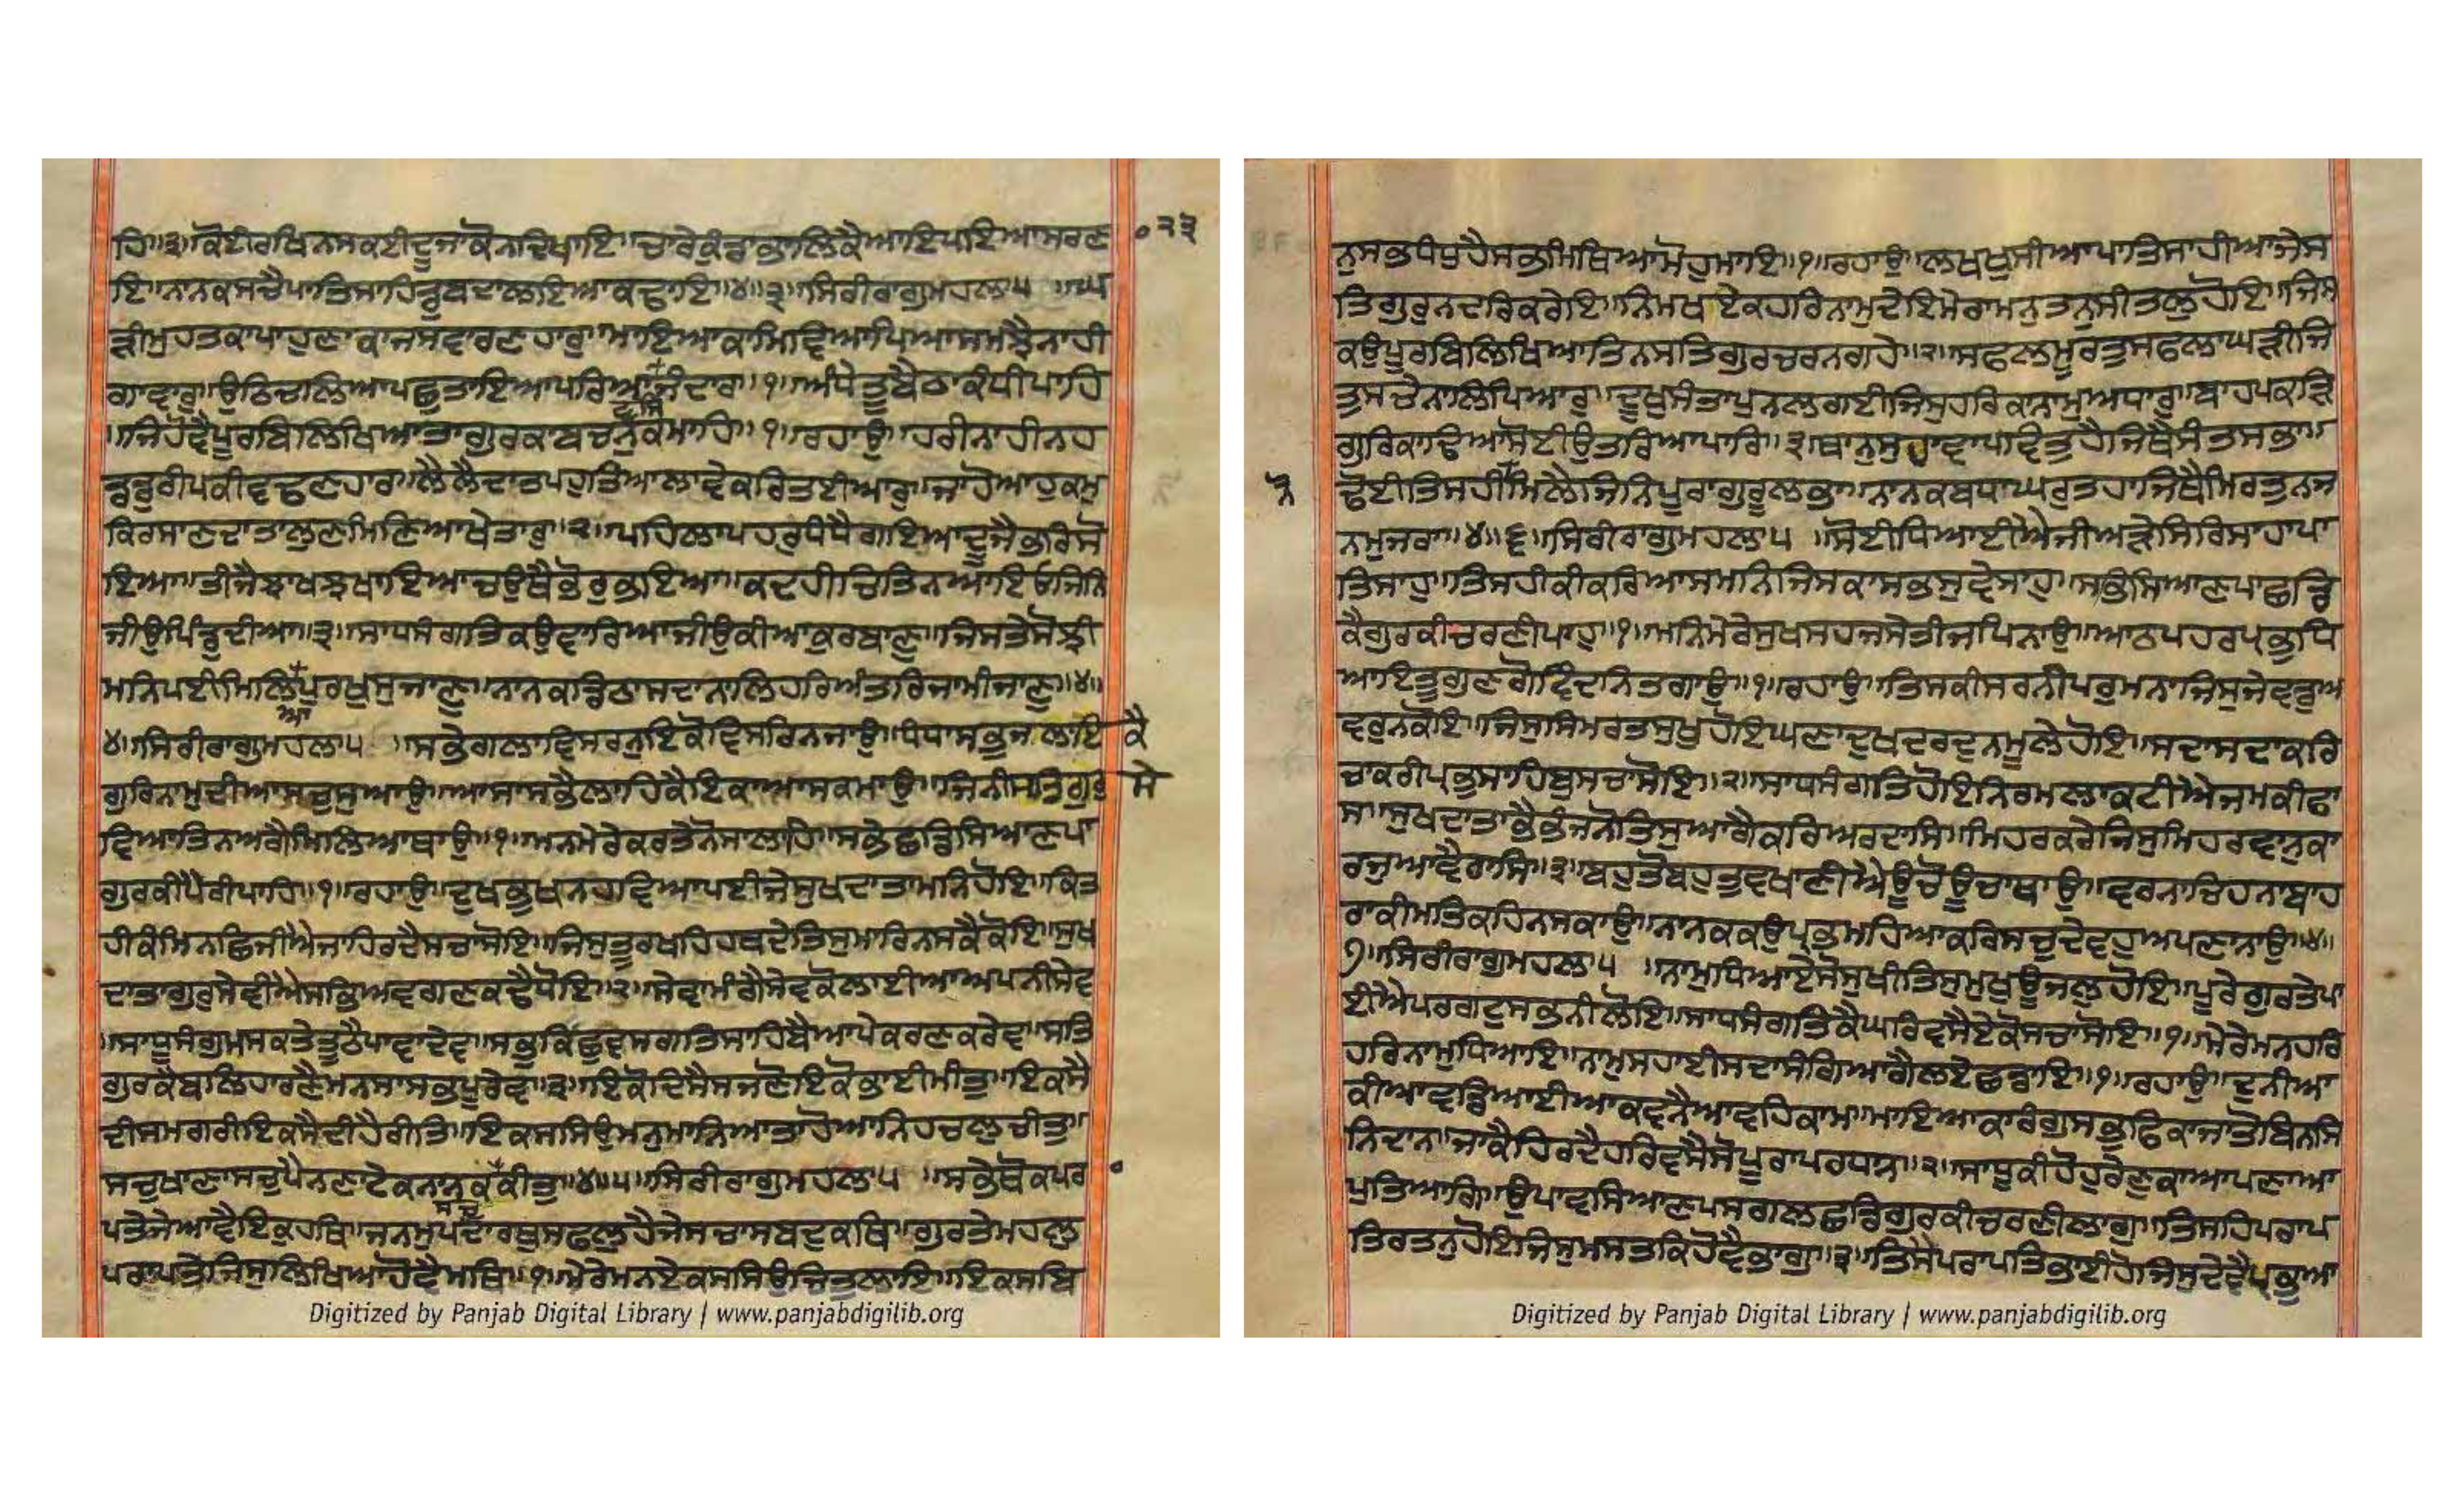 ਹਿ॥੩॥ਕੋਈਰਖਿਨਸਕਈਦੂਜਾਕੋਨਦਿਖਾਇ॥ਚਾਰੇਕੁੰਡਾਭਾਲਿਕੈਆਇਪਇਆਸਰਣ
੨੩
ਇ॥ਨਾਨਕਸਚੈਪਾਤਿਸਾਹਿਡੁਬਦਾਲਇਆਕਢਾਇ॥੪॥੩॥ਸਿਰੀਰਾਗੁਮਹਲਾ੫ ॥ਘ
ੜੀਮੁਹਤਕਾਪਾਹੁਣਾਕਾਜਸਵਾਰਣਹਾਰੁ॥ਮਾਇਆਕਾਮਿਵਿਆਪਿਆਸਮਝੈਨਾਹੀ
ਗਾਵਾਰੁ॥ਉਠਿਚਲਿਆਪਛੁਤਾਇਆਪਰਿਆਜੰਦਾਰ॥੧॥ਅੰਧੇਤੂਬੈਠਾਕੰਧੀਪਾਹਿ
ਵਸਿ
॥ਜਿਹੋਵੈਪੂਰਬਿਲਿਖਿਆਤਾਗੁਰਕਾਬਚਨੁਕਮਾਹਿ॥੧॥ਰਹਾਉ॥ਹਰੀਨਾਹੀਨਹ
ਡਡੁਰੀਪਕੀਵਢਣਹਾਰ॥ਲੈਲੈਦਾਤਪਹੁਤਿਆਲਾਵੇਕਰਿਤਈਆਰੁ॥ਜਾਹੋਆਹੁਕਮੁ
ਕਿਰਸਾਣਦਾਤਾਲੁਣਮਿਣਿਆਖੇਤਾਰੁ॥੨॥ਪਹਿਲਾਪਹਰੁਧੰਧੈਗਇਆਦੂਜੈਭਰਿਸੋ
ਇਆ॥ਤੀਜੈਝਾਖਝਖਾਇਆਚਉਥੈਭੋਰੁਭਇਆ॥ਕਦਹੀਚਿਤਿਨਆਇਓਜਿਨਿ
ਜੀਉਪਿੰਡੁਦੀਆ॥੩॥ਸਾਧਸੰਗਤਿਕਉਵਾਰਿਆਜੀਉਕੀਆਕੁਰਬਾਣੁ॥ਜਿਸਤੇਸੋਝੀ
ਮਨਿਪਈਮਿਲਿਪੁਰਖੁਸੁਜਾਣੁ॥ਨਾਨਕਡਿਠਾਸਦਾਨਾਲਿਹਰਿਅੰਤਰਿਜਾਮੀਜਾਣੁ॥੪॥
ਆ
੪॥ਸਿਰੀਰਾਗੁਮਹਲਾ੫ ॥ਸਭੇਗਲਾਵਿਸਰਨੁਇਕੋਵਿਸਰਿਨਜਾਉ॥ਧੰਧਾਸਭੁਜਲਾਇ ਕੈ
ਗੁਰਿਨਾਮੁਦੀਆਸਚੁਸੁਆਉ॥ਆਸਾਸਭੈਲਾਹਿਕੈਇਕਾਆਸਕਮਾਉ॥ਜਿਨੀਸਤਿਗੁਰੁ ਸੇ
ਵਿਆਤਿਨਅਗੈਮਿਲਿਆਥਾਉ॥੧॥ਮਨਮੇਰੇਕਰਤੇਨੋਸਾਲਾਹਿ॥ਸਭੇਛਡਿਸਿਆਣਪਾ
ਗੁਰਕੀਪੈਰੀਪਾਹਿ॥੧॥ਰਹਾਉ॥ਦੁਖਭੁਖਨਹਵਿਆਪਈਜੇਸੁਖਦਾਤਾਮਨਿਹੋਇ॥ਕਿਤ
ਹੀਕੰਮਿਨਛਿਜੀਐਜਾਹਿਰਦੈਸਚਾਸੋਇ॥ਜਿਸੁਤੂਰਖਹਿਹਥਦੇਤਿਸੁਮਾਰਿਨਸਕੈਕੋਇ॥ਸੁਖ
ਦਾਤਾਗੁਰੁਸੇਵੀਐਸਭਿਅਵਗਣਕਢੈਧੋਇ॥੨॥ਸੇਵਾਮੰਗੈਸੇਵਕੋਲਾਈਆਅਪਨੀਸੇਵ
॥ਸਾਧੂਸੰਗੁਮਸਕਤੇਤੂਠੈਪਾਵਾਦੇਵ॥ਸਭੁਕਿਛੁਵਸਗਤਿਸਾਹਿਬੈਆਪੇਕਰਣਕਰੇਵ॥ਸਤਿ
ਗੁਰਕੈਬਲਿਹਾਰਣੈਮਨਸਾਸਭਪੂਰੇਵ॥੩॥ਇਕੋਦਿਸੈਸਜਣੋਇਕੋਭਾਈਮੀਤੁ॥ਇਕਸੈ
ਦੀਸਮਗਰੀਇਕਸੈਦੀਹੈਰੀਤਿ॥ਇਕਸਸਿਉਮਨੁਮਾਨਿਆਤਾਹੋਆਨਿਹਚਲੁਚੀਤੁ॥
ਸਚੁਖਾਣਾਸਚੁਪੈਨਣਾਟੇਕਨਾਨਕਕੀਤੁ॥੪॥੫॥ਸਿਰੀਰਾਗੁਮਹਲਾ੫ ॥ਸਭੇਥੋਕਪਰ
ਸਚੁ
ਪਤੇਜੇਆਵੈਇਕੁਹਥਿ॥ਜਨਮੁਪਦਾਰਥੁਸਫਲੁਹੈਜੇਸਚਾਸਬਦੁਕਥਿ॥ਗੁਰਤੇਮਹਲੁ
ਪਰਾਪਤੇਜਿਸੁਲਿਖਿਆਹੋਵੈਮਥਿ॥੧॥ਮੇਰੇਮਨਏਕਸਸਿਉਚਿਤੁਲਾਇ॥ਇਕਸਬਿ
Digitized by Panjab Digital Library | www.panjabdigilib.org
ਨੁਸਭਧੰਧੁਹੈਸਭਮਿਥਿਆਮੋਹੁਮਾਇ॥੧॥ਰਹਾਉ॥ਲਖਖੁਸੀਆਪਾਤਿਸਾਹੀਆਜੇਸ
ਤਿਗੁਰੁਨਦਰਿਕਰੇਇ॥ਨਿਮਖਏਕਹਰਿਨਾਮੁਦੇਇਮੇਰਾਮਨੁਤਨੁਸੀਤਲੁਹੋਇ॥ਜਿਸ
ਕਉਪੂਰਬਿਲਿਖਿਆਤਿਨਸਤਿਗੁਰਚਰਨਗਹੇ॥੨॥ਸਫਲਮੂਰਤੁਸਫਲਾਘੜੀਜਿ
ਤੁਸਚੇਨਾਲਿਪਿਆਰੁ॥ਦੂਖੁਸੰਤਾਪੁਨਲਗਈਜਿਸੁਹਰਿਕਾਨਾਮੁਅਧਾਰੁ॥ਬਾਹਪਕੜਿ
ਗੁਰਿਕਾਢਿਆਸੋਈਉਤਰਿਆਪਾਰਿ॥੩॥ਥਾਨੁਸੁਹਾਵਾਪਵਿਤੁਹੈਜਿਥੈਸੰਤਸਭਾ॥
ਢੋਈਤਿਸਹੀਮਿਲੈਜਿਨਿਪੂਰਾਗੁਰੂਲਭਾ॥ਨਾਨਕਬਧਾਘਰੁਤਹਾਜਿਥੈਮਿਰਤੁਨਜ
ਨਮੁਜਰਾ॥੪॥੬॥ਸਿਰੀਰਾਗੁਮਹਲਾ੫ ॥ਸੋਈਧਿਆਈਐਜੀਅੜੇਸਿਰਿਸਾਹਾਪਾ
ਤਿਸਾਹੁ॥ਤਿਸਹੀਕੀਕਰਿਆਸਮਨਿਜਿਸਕਾਸਭਸੁਵੇਸਾਹੁ॥ਸਭਿਸਿਆਣਪਾਛਡਿ
ਕੈਗੁਰਕੀਚਰਣੀਪਾਹੁ॥੧॥ਮਨਿਮੇਰੇਸੁਖਸਹਜਸੇਤੀਜਪਿਨਾਉ॥ਆਠਪਹਰਪ੍ਰਭੁਧਿ
ਆਇਤੂਗੁਣਗੋਵਿੰਦਨਿਤਗਾਉ॥੧॥ਰਹਾਉ॥ਤਿਸਕੀਸਰਨੀਪਰੁਮਨਾਜਿਸੁਜੇਵਡੁਅ
ਵਰੁਨਕੋਇ॥ਜਿਸੁਸਿਮਰਤਸੁਖੁਹੋਇਘਣਾਦੁਖਦਰਦੁਨਮੂਲੇਹੋਇ॥ਸਦਾਸਦਾਕਰਿ
ਚਾਕਰੀਪ੍ਰਭੁਸਾਹਿਬੁਸਚਾਸੋਇ॥੨॥ਸਾਧਸੰਗਤਿਹੋਇਨਿਰਮਲਾਕਟੀਐਜਮਕੀਫਾ
ਸ॥ਸੁਖਦਾਤਾਭੈਭੰਜਨੋਤਿਸੁਆਗੈਕਰਿਅਰਦਾਸਿ॥ਮਿਹਰਕਰੇਜਿਸੁਮਿਹਰਵਾਨੁਕਾ
ਰਜੁਆਵੈਰਾਸਿ॥੩॥ਬਹੁਤੋਬਹੁਤੁਵਖਾਣੀਐਊਚੋਊਚਾਥਾਉ॥ਵਰਨਾਚਿਹਨਾਬਾਹ
ਰਾਕੀਮਤਿਕਹਿਨਸਕਾਉ॥ਨਾਨਕਕਉਪ੍ਰਭਮਹਿਆਕਰਿਸਚੁਦੇਵਹੁਅਪਣਾਨਾਉ॥੪॥
੭॥ਸਿਰੀਰਾਗੁਮਹਲਾ੫ ॥ਨਾਮੁਧਿਆਏਸੋਸੁਖੀਤਿਸੁਮੁਖੁਊਜਲੁਹੋਇ॥ਪੂਰੇਗੁਰਤੇਪਾ
ਈਐਪਰਗਟੁਸਭਨੀਲੋਇ॥ਸਾਧਸੰਗਤਿਕੈਘਰਿਵਸੈਏਕੋਸਚਾਸੋਇ॥੧॥ਮੇਰੇਮਨਹਰਿ
ਹਰਿਨਾਮੁਧਿਆਇ॥ਨਾਮੁਸਹਾਈਸਦਾਸੰਗਿਆਗੈਲਏਛਡਾਇ॥੧॥ਰਹਾਉ॥ਦੁਨੀਆ
ਕੀਆਵਡਿਆਈਆਕਵਨੈਆਵਹਿਕਾਮ॥ਮਾਇਆਕਾਰੰਗੁਸਭੁਫਿਕਾਜਾਤੋਬਿਨਸਿ
ਨਿਦਾਨ॥ਜਾਕੈਹਿਰਦੈਹਰਿਵਸੈਸੋਪੂਰਾਪਰਧਾਨ॥੨॥ਸਾਧੂਕੀਹੋਹੁਰੇਣੁਕਾਆਪਣਾਆ
ਪੁਤਿਆਗਿ॥ਉਪਾਵਸਿਆਣਪਸਗਲਛਡਿਗੁਰਕੀਚਰਣੀਲਾਗੁ॥ਤਿਸਹਿਪਰਾਪ
ਤਿਰਤਨੁਹੋਇਜਿਸੁਮਸਤਕਿਹੋਵੈਭਾਗੁ॥੩॥ਤਿਸੈਪਰਾਪਤਿਭਾਈਹੋਜਿਸੁਦੇਵੈਪ੍ਰਭੁਆ
Digitized by Panjab Digital Library | www.panjabdigilib.org